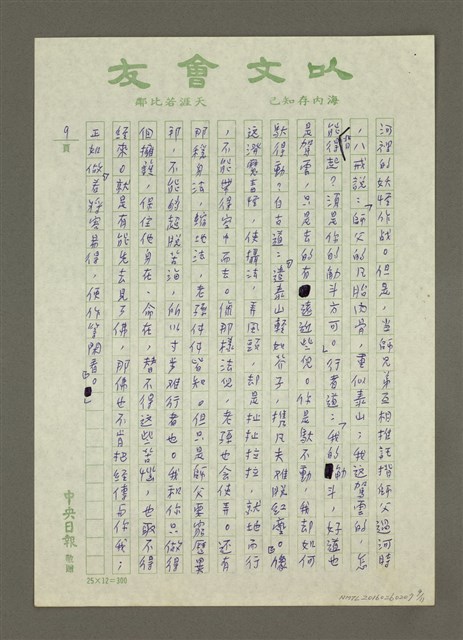 以文會友
海內存知己
天涯若比鄰
河裡的妖怪作战。但是，当師兄弟互相推託揹師父過河時
，八戒說：「師父的凡胎肉骨，重似泰山；我这駕雲的，怎
能揹得起？須是你的觔斗方可。」行者道：「我的觔斗，好道也
是駕雲，只是去的有遠近些兒。你是馱不動，我却如何
馱得動？自古道：『遣泰山輕如芥子，携凡夫难脫紅塵。』像
这潑魔毒怪，使攝法，弄風頭，却是扯扯拉拉，就地而行
，不能帶得空中而去。像那樣法兒，老孫也会使弄。还有
那隱身法，縮地法，老孫件件皆知。但只是師父要窮歷異
邦，不能彀超脫苦海，所以寸步难行者也。我和你只做得
個擁護，保住他身在、命在，替不得这些苦惱，也取不得
經來。就是有能先去見了佛，那佛也不肯把經傳与你我；
正如做『若將容易得，便作等閒看。』」
9頁
中央日報
敬贈
25×12=300
NMTL20160260209 9/11